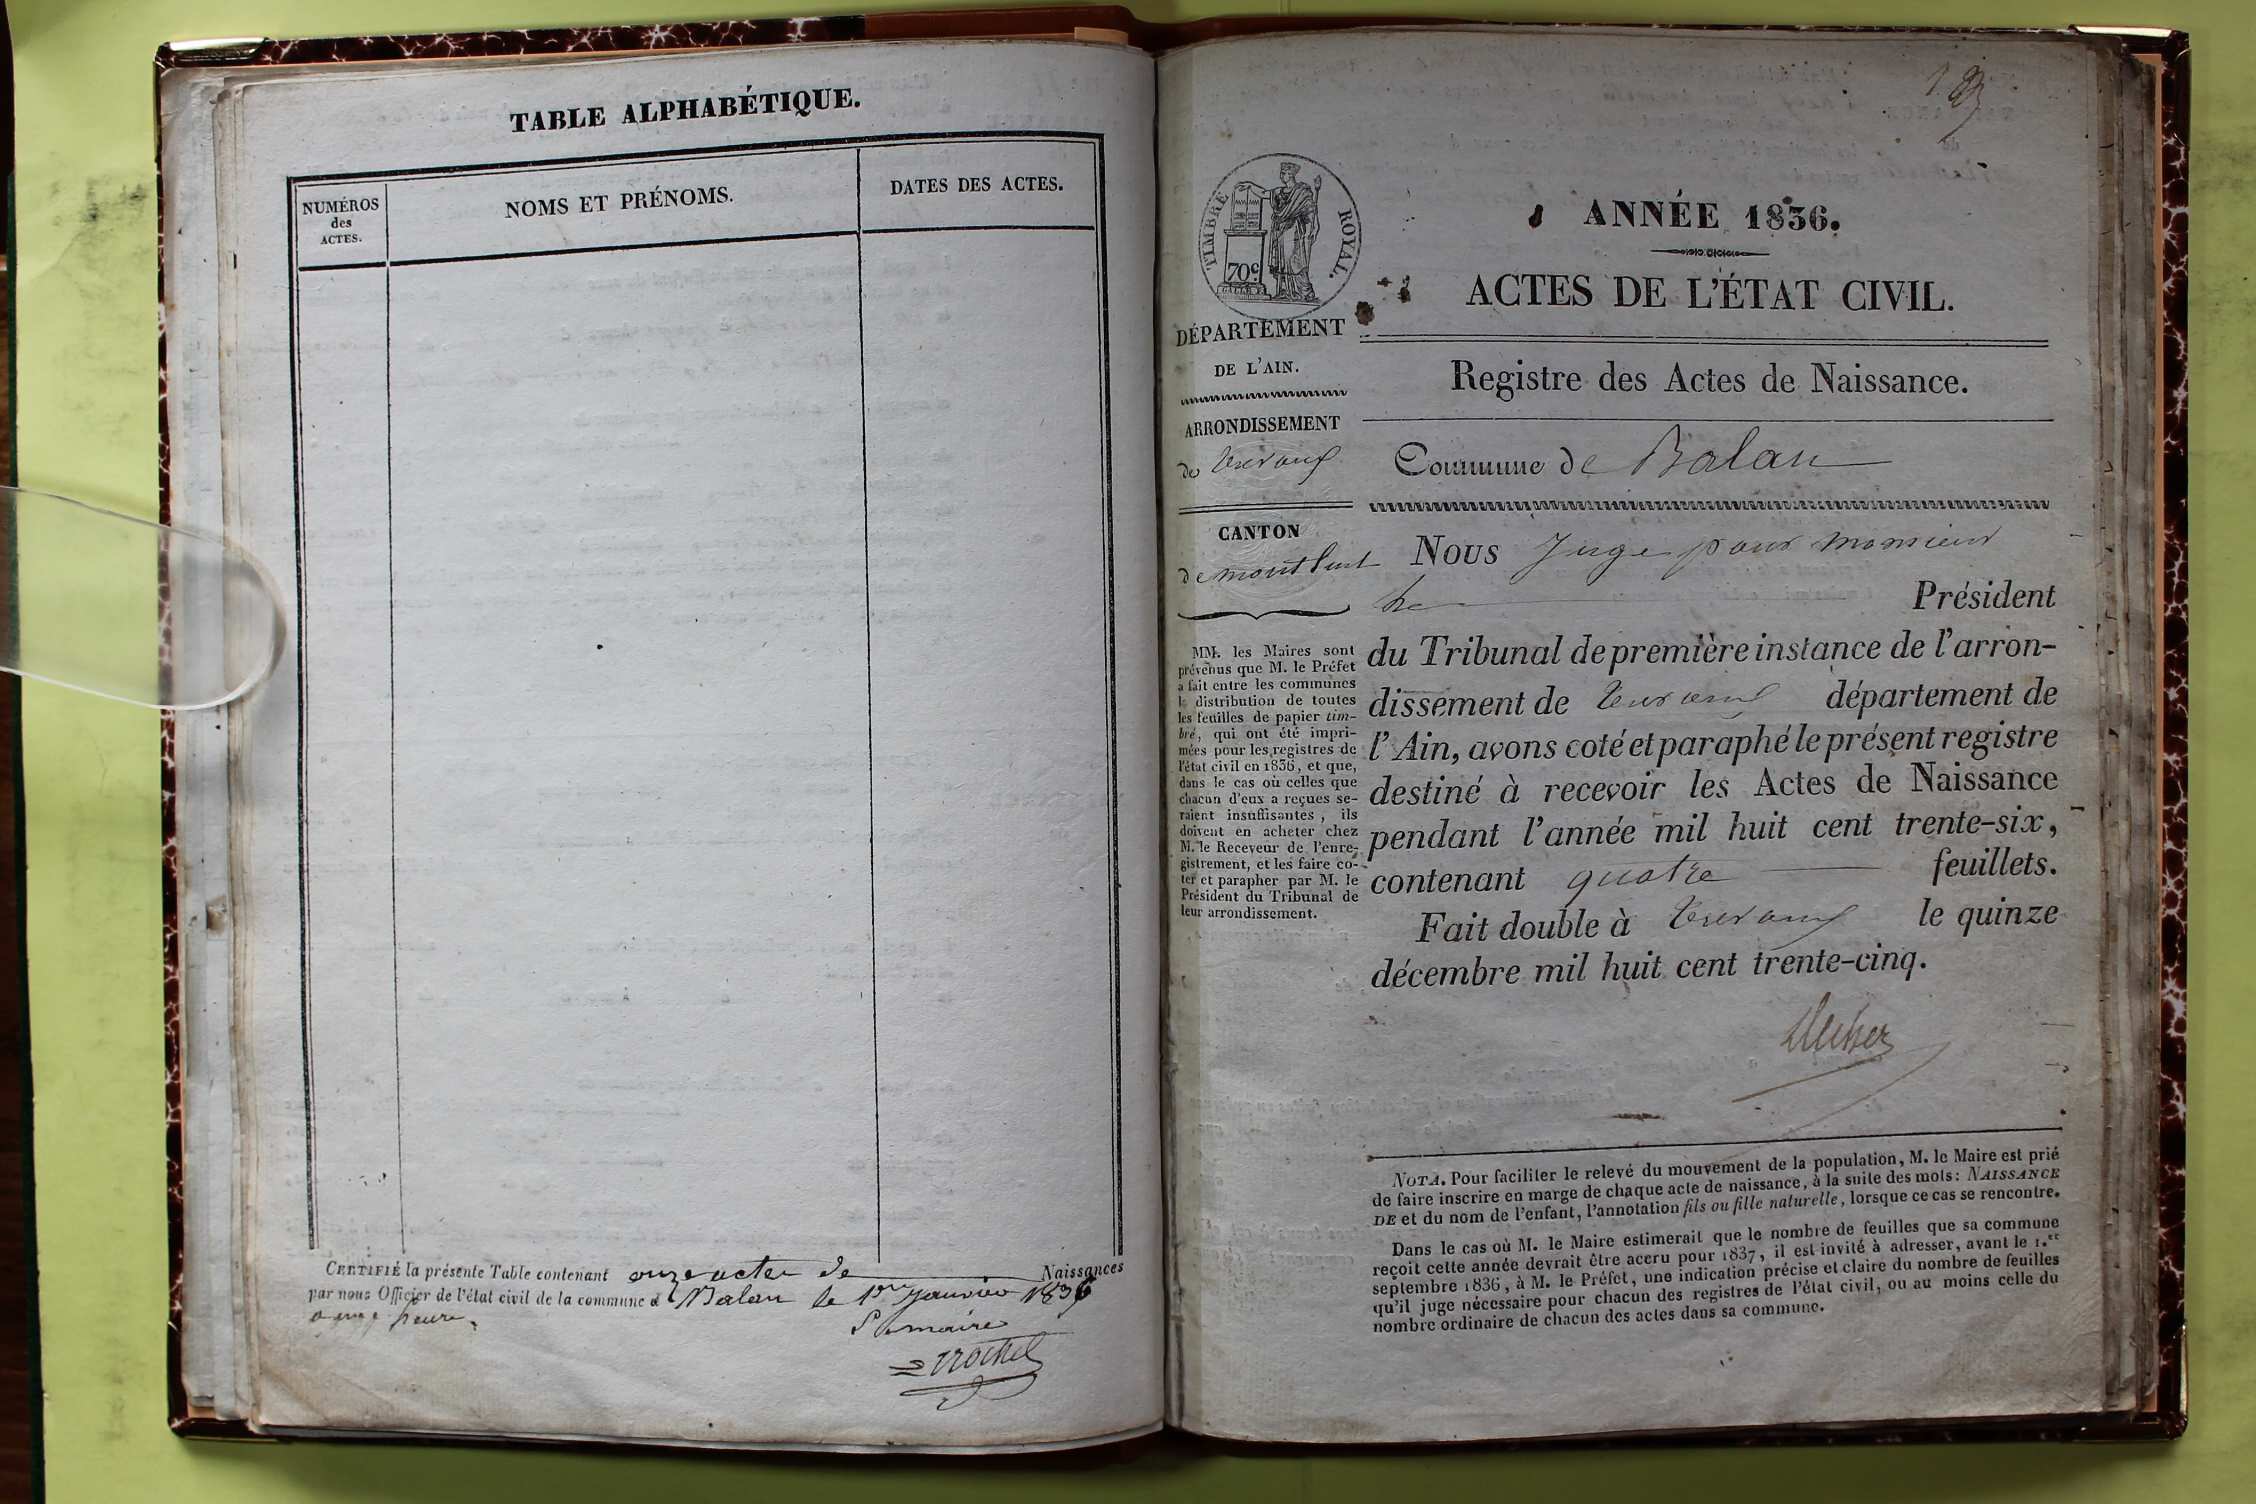 TABLE ALPHABÉTIQUE.
NUMÉROS
des
ACTES.
NOMS ET PRÉNOMS.
DATES DES ACTES.
CERTIFIÉ la présente Table contenant onze actes de Naissances
par nous Officier de l'état civil de la commune d Balan le 1er Janvier 1836
heure.
Le maire
ANNÉE 1836.
ACTES DE L'ÉTAT CIVIL.
TIMBRE ROYAL.
70c
DÉPARTEMENT
DE L'AIN.
ARRONDISSEMENT
de Trévoux
CANTON
de montluel
MM. les Maires sont
prévenus que M. le Préfet
a fait entre les communes
la distribution de toutes
les feuilles de papier tim-
bré, qui ont été impri-
mées pour les registres de
l'état civil en 1836, et que,
dans le cas où celles que
chacun d'eux a reçues se-
raient insuffisantes, ils
doivent en acheter chez
M. le Receveur de l'enre-
gistrement, et les faire co-
ter et parapher par M. le
Président du Tribunal de
leur arrondissement.
Registre des Actes de Naissance.
Commune de Balan
NOUS Juge pour monsieur
le Président
du Tribunal de première instance de l'arron-
dissement de Trévoux département de
l'Ain, avons coté et paraphé le présent registre
destiné à recevoir les Actes de Naissance
pendant l'année mil huit cent trente-six,
contenant quatre feuillets.
Fait double à Trévoux le quinze
décembre mil huit cent trente-cinq.
NOTA. Pour faciliter le relevé du mouvement de la population, M. le Maire est prié
de faire inscrire en marge de chaque acte de naissance, à la suite des mots: NAISSANCE
DE et du nom de l'enfant, l'annotation fils ou fille naturelle, lorsque ce cas se rencontre.
Dans le cas où M. le Maire estimerait que le nombre de feuilles que sa commune
reçoit cette année devrait être accru pour 1837, il est invité à adresser, avant le 1.er
septembre 1836, à M. le Préfet, une indication précise et claire du nombre de feuilles
qu'il juge nécessaire pour chacun des registres de l'état civil, ou au moins celle du
nombre ordinaire de chacun des actes dans sa commune.